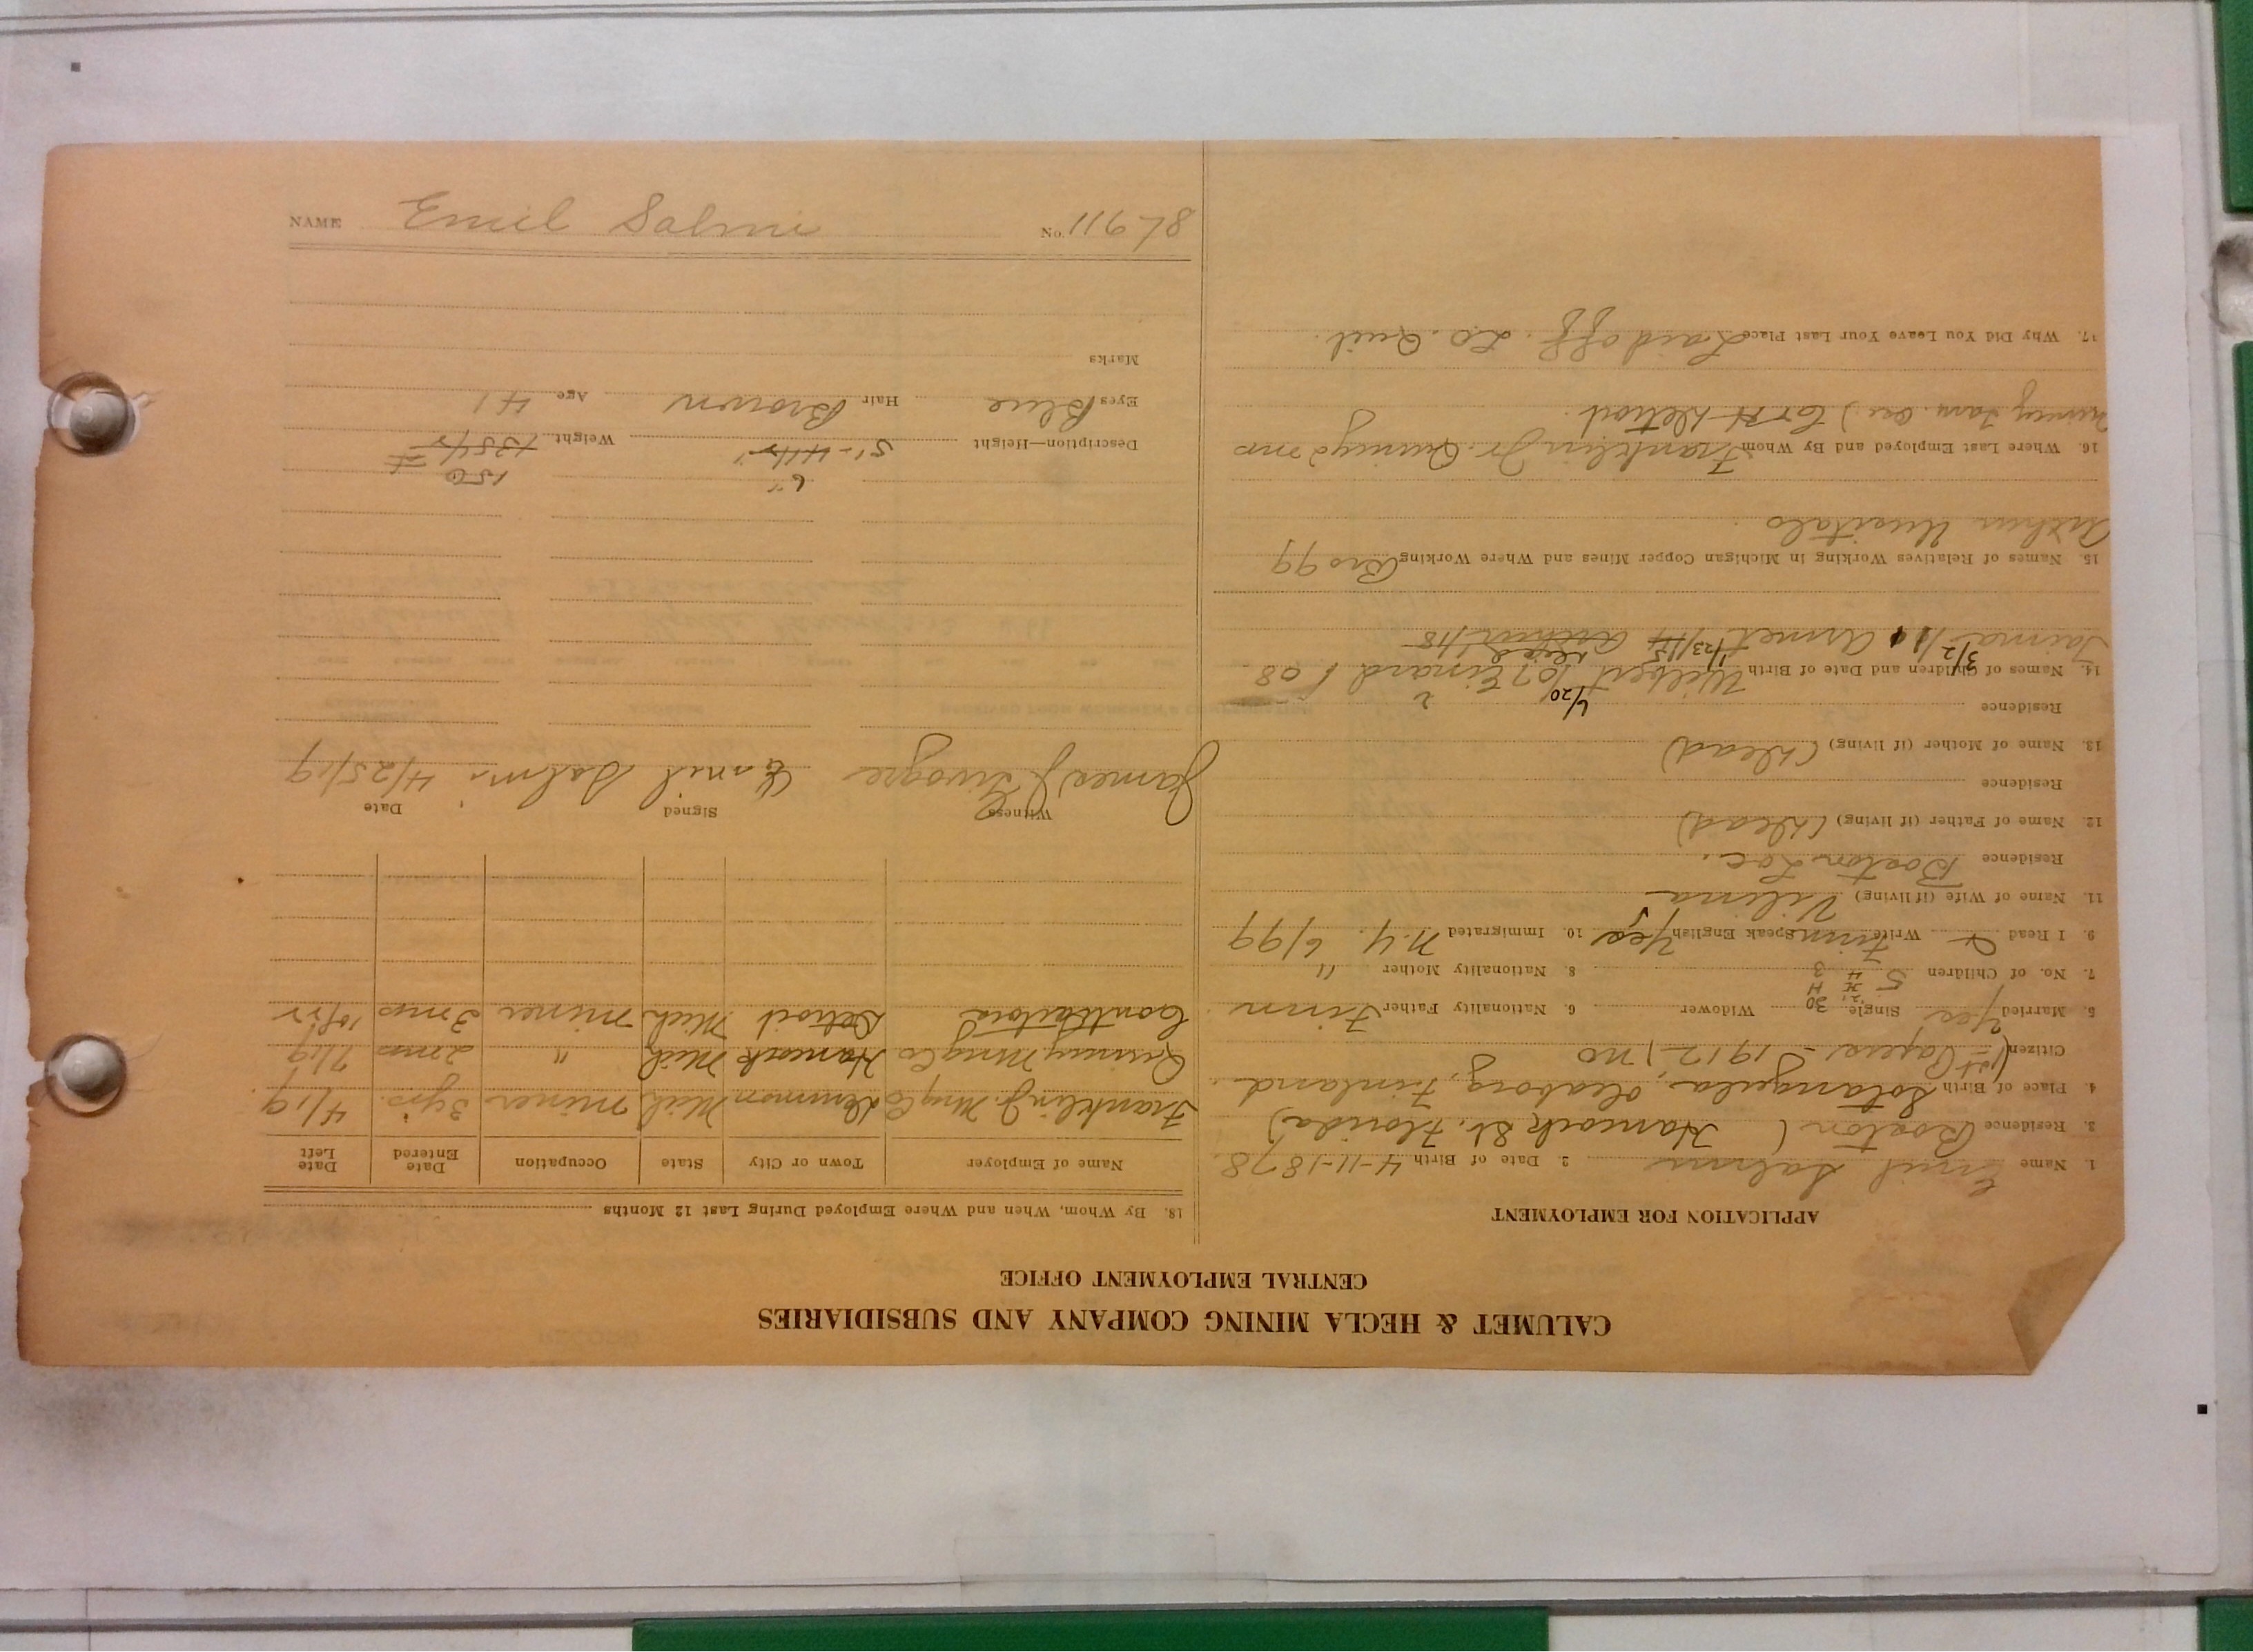 CALUMET & HECLA MINING COMPANY AND SUBSIDIARIES
CENTRAL EMPLOYMENT OFFICE
APPLICATION FOR EMPLOYMENT
1. Name Emil Salmi 2. Date of Birth 4-11-1878.
3. Residence Boston ( Hancock St. Florida)
4. Place of Birth Sotangela, Oleaborg, Finland.
Citizen (1st Papers - 1912) no
5. Married Yes Single Widower 6. Nationality Father Finn
7. No. of Children 5 4 3 8. Nationality Mother "
9. I Read & Write Finn Speak English Yes 10. Immigrated N.Y. 6/99
11. Name of Wife (if living) Vilima
Residence Boston Loc.
12. Name of Father (if living) (Dead)
Residence
13. Name of Mother (if living) (Dead)
Residence
14. Names of Children and Date of Birth Wilbert 6/20/07 Einard 08
3/2/11 Armet 1/23/15 Arthur 1/18
15. Names of Relatives Working in Michigan Copper Mines and Where Working Bro 99
Arthur Uusitalo
16. Where Last Employed and By Whom Franklin Jr. Quincy 2 mos
C & H Detroit.
17. Why Did You Leave Your Last Place Laid off. Quit.
18. By Whom, When and Where Employed During Last 12 Months
Name of Employer Town or City State Occupation Date Entered Date Left
Franklin J. Mng Co Demmon Mich miner 3 yrs. 4/19
Quincy Mng Co Hancock Mich " 2 mos 7/19
Contractors Detroit Mich miner 3 mos
Witness Signed Date
James J. Emil Salmi 4/25/19
6" 150
Description—Height 5'-4½" Weight 135
Eyes Blue Hair Brown Age 41
Marks
NAME Emil Salmi No. 11678